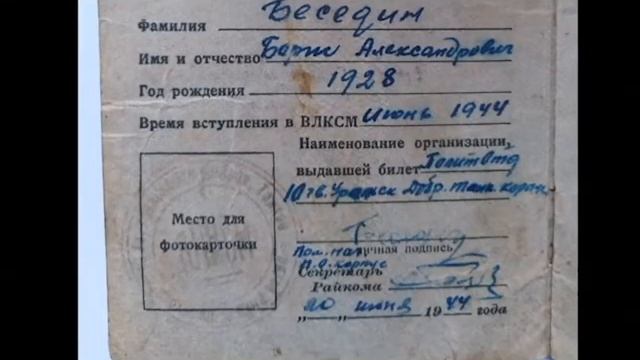 Фамилия Беседин
Имя и отчество Борис Александрович
Год рождения 1928
Время вступления в ВЛКСМ Июнь 1944
Наименование организации,
выдавшей билет Политотд
10 гв. Уральск Добр. танк. корпус
Место для
фотокарточки
Личная подпись
Пом. нач.
П.О. корпус
Секретарь
Райкома
„20“ июня 1944 года